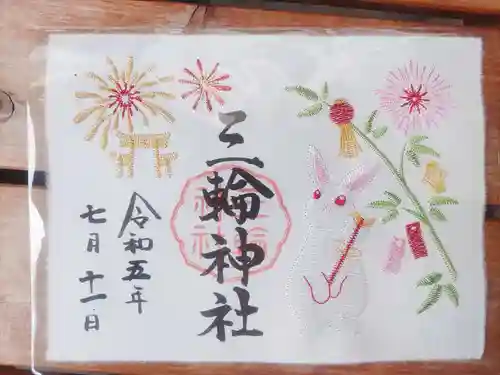 三輪神社
令和五年
七月十一日